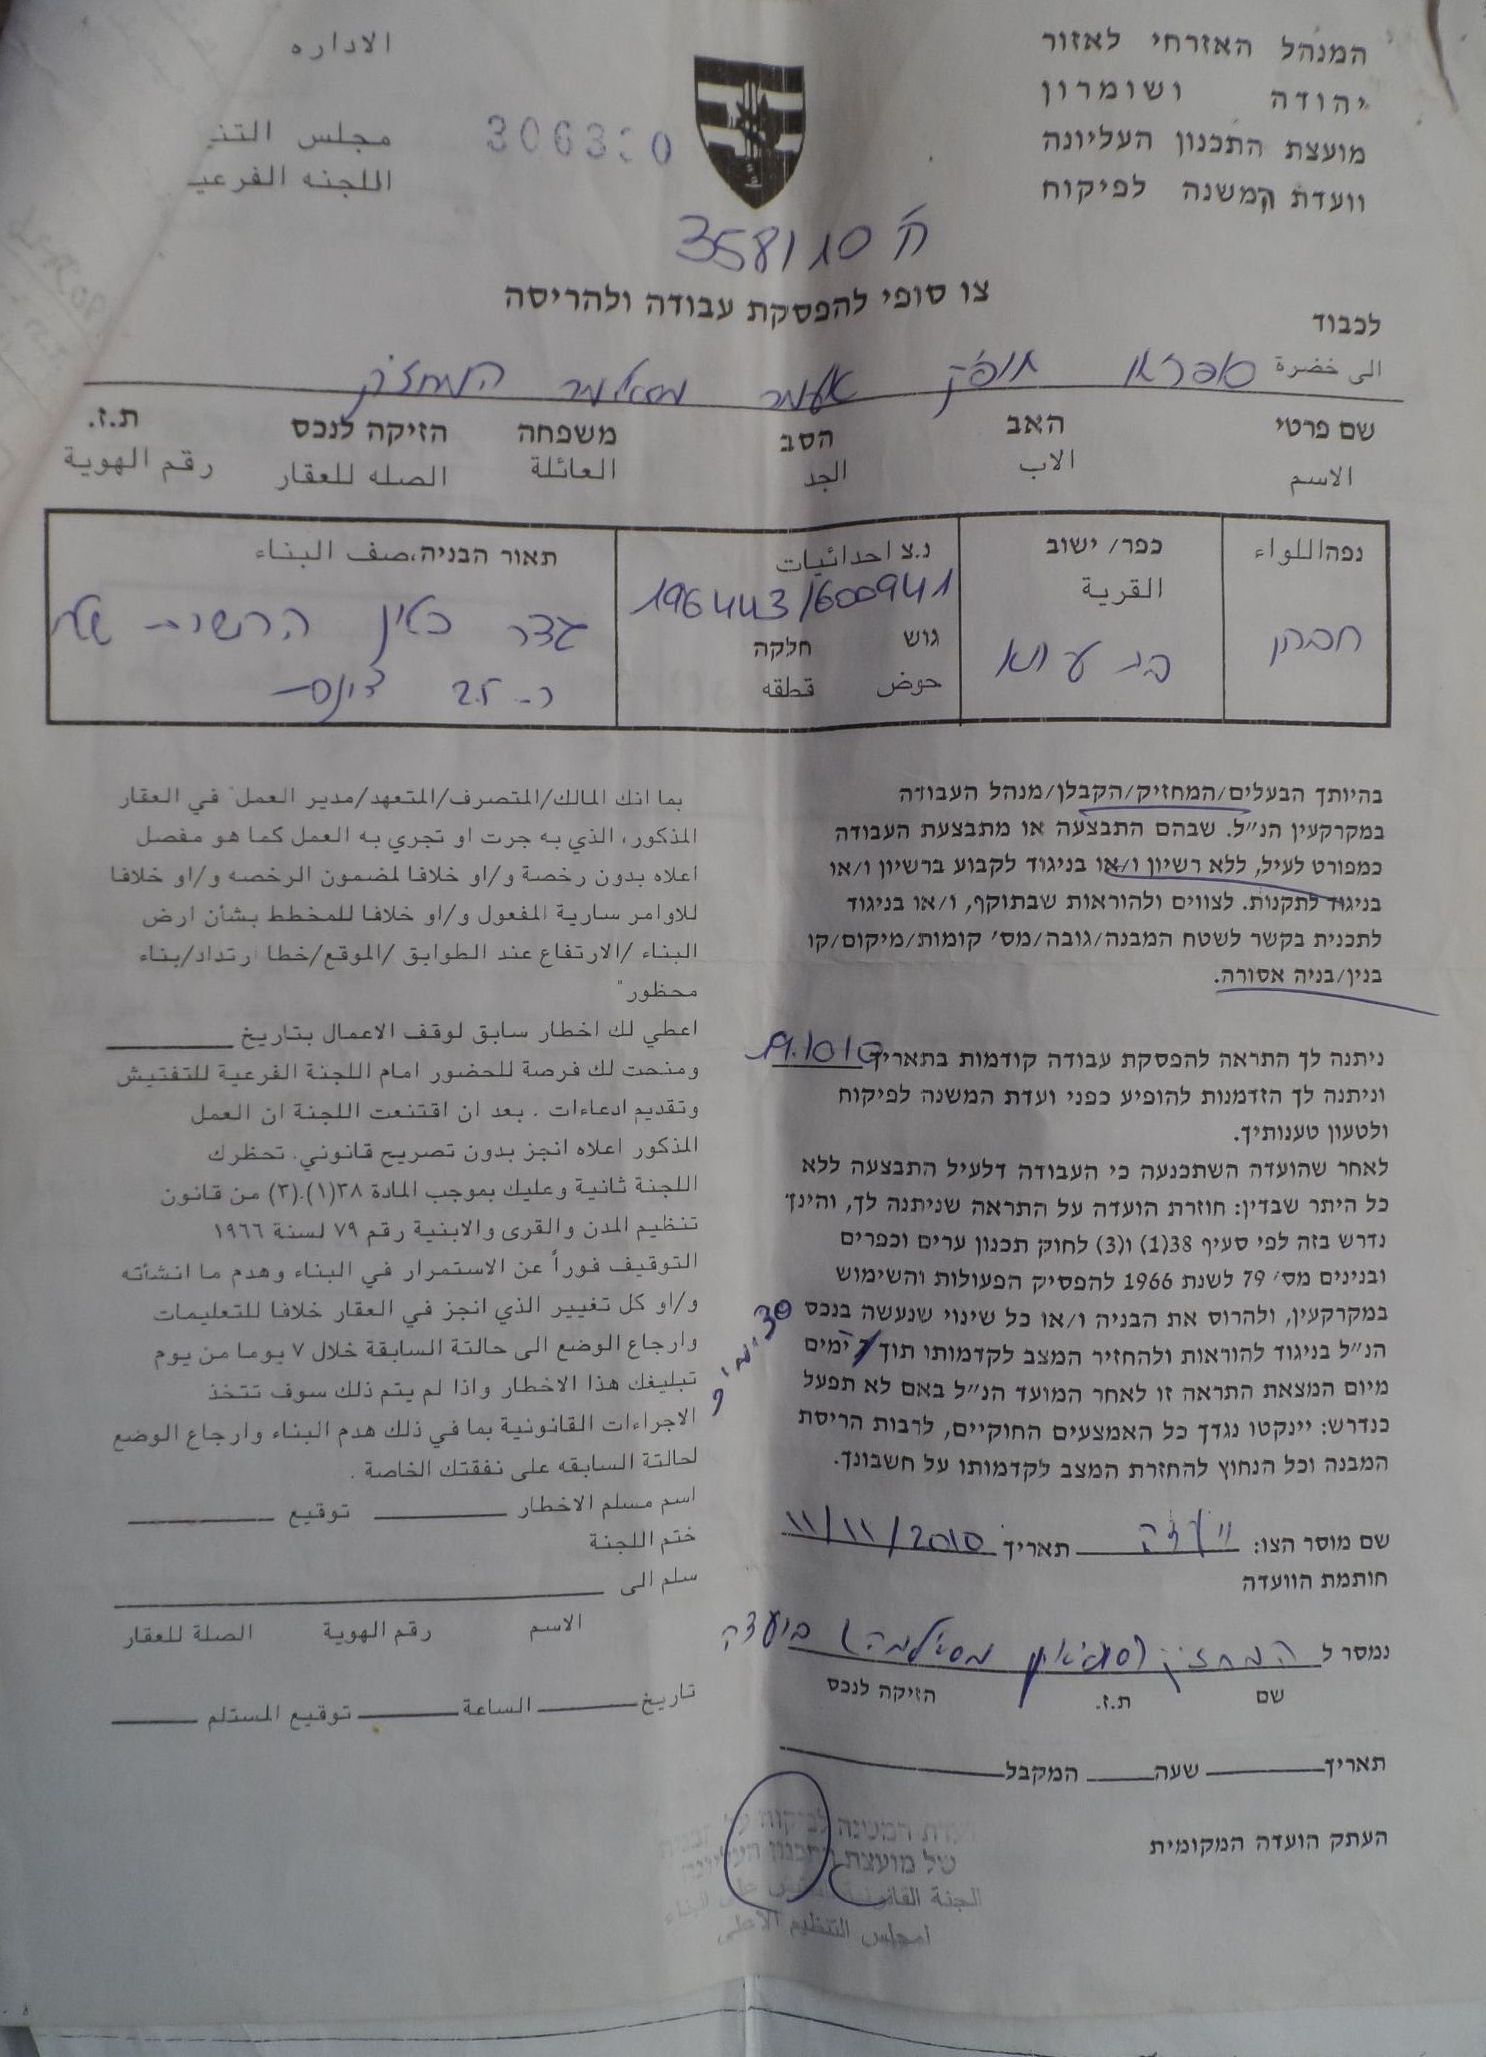 המנהל האזרחי לאזור
יהודה ושומרון
מועצת התכנון העליונה
וועדת המשנה לפיקוח
الاداره
مجلس
اللجنه
ה 358/10
צו סופי להפסקת עבודה ולהריסה
לכבוד
الى حضرة
המחזיק
שם פרטי האב הסב משפחה הזיקה לנכס ת.ז.
الاسم الاب الجد العائلة الصله للعقار رقم الهوية
נפה اللواء
חברון
כפר/ ישוב
القرية
נ.צ احداثيات
196443/600941
גוש חלקה
حوض قطقه
תאור הבניה, صف البناء
גדר
2.5
בהיותך הבעלים/המחזיק/הקבלן/מנהל העבודה
במקרקעין הנ״ל. שבהם התבצעה או מתבצעת העבודה
כמפורט לעיל, ללא רשיון ו/או בניגוד לקבוע ברשיון ו/או
בניגוד לתקנות. לצווים ולהוראות שבתוקף, ו/או בניגוד
לתכנית בקשר לשטח המבנה/גובה/מס׳ קומות/מיקום/קו
בנין/בניה אסורה.
ניתנה לך התראה להפסקת עבודה קודמות בתאריך
וניתנה לך הזדמנות להופיע בפני ועדת המשנה לפיקוח
ולטעון טענותיך.
לאחר שהועדה השתכנעה כי העבודה דלעיל התבצעה ללא
כל היתר שבדין: חוזרת הועדה על התראה שניתנה לך, והינך
נדרש בזה לפי סעיף 38(1) ו(3) לחוק תכנון ערים וכפרים
ובנינים מס׳ 79 לשנת 1966 להפסיק הפעולות והשימוש
במקרקעין, ולהרוס את הבניה ו/או כל שינוי שנעשה בנכס
הנ״ל בניגוד להוראות ולהחזיר המצב לקדמותו תוך 7 ימים
30 ימים
מיום המצאת התראה זו לאחר המועד הנ״ל באם לא תפעל
כנדרש: יינקטו נגדך כל האמצעים החוקיים, לרבות הריסת
המבנה וכל הנחוץ להחזרת המצב לקדמותו על חשבונך.
שם מוסר הצו: תאריך 11/11/2010
חותמת הוועדה
נמסר ל המחזיק
שם ת.ז. הזיקה לנכס
תאריך שעה המקבל
העתק הועדה המקומית
بما انك المالك/المتصرف/المتعهد/مدير العمل" في العقار
المذكور، الذي به جرت او تجري به العمل كما هو مفصل
اعلاه بدون رخصة و/او خلافا لمضمون الرخصه و/او خلافا
للاوامر سارية المفعول و/او خلافا للمخطط بشأن ارض
البناء /الارتفاع عند الطوابق /الموقع/خطا ارتداد/بناء
محظور"
اعطي لك اخطار سابق لوقف الاعمال بتاريخ
ومنحت لك فرصة للحضور امام اللجنة الفرعية للتفتيش
وتقديم ادعاءات . بعد ان اقتنعت اللجنة ان العمل
المذكور اعلاه انجز بدون تصريح قانوني. تحظرك
اللجنة ثانية وعليك بموجب المادة ٣٨(١).(٣) من قانون
تنظيم المدن والقرى والابنية رقم ٧٩ لسنة ١٩٦٦
التوقيف فوراً عن الاستمرار في البناء وهدم ما انشأته
و/او كل تغيير الذي انجز في العقار خلافا للتعليمات
وارجاع الوضع الى حالتة السابقة خلال ٧ يوما من يوم
تبليغك هذا الاخطار واذا لم يتم ذلك سوف تتخذ
الاجراءات القانونية بما في ذلك هدم البناء وارجاع الوضع
لحالتة السابقه على نفقتك الخاصة .
اسم مسلم الاخطار توقيع
ختم اللجنة
سلم الى
الاسم رقم الهوية الصلة للعقار
تاريخ الساعة توقيع المستلم
של מועצת התכנון